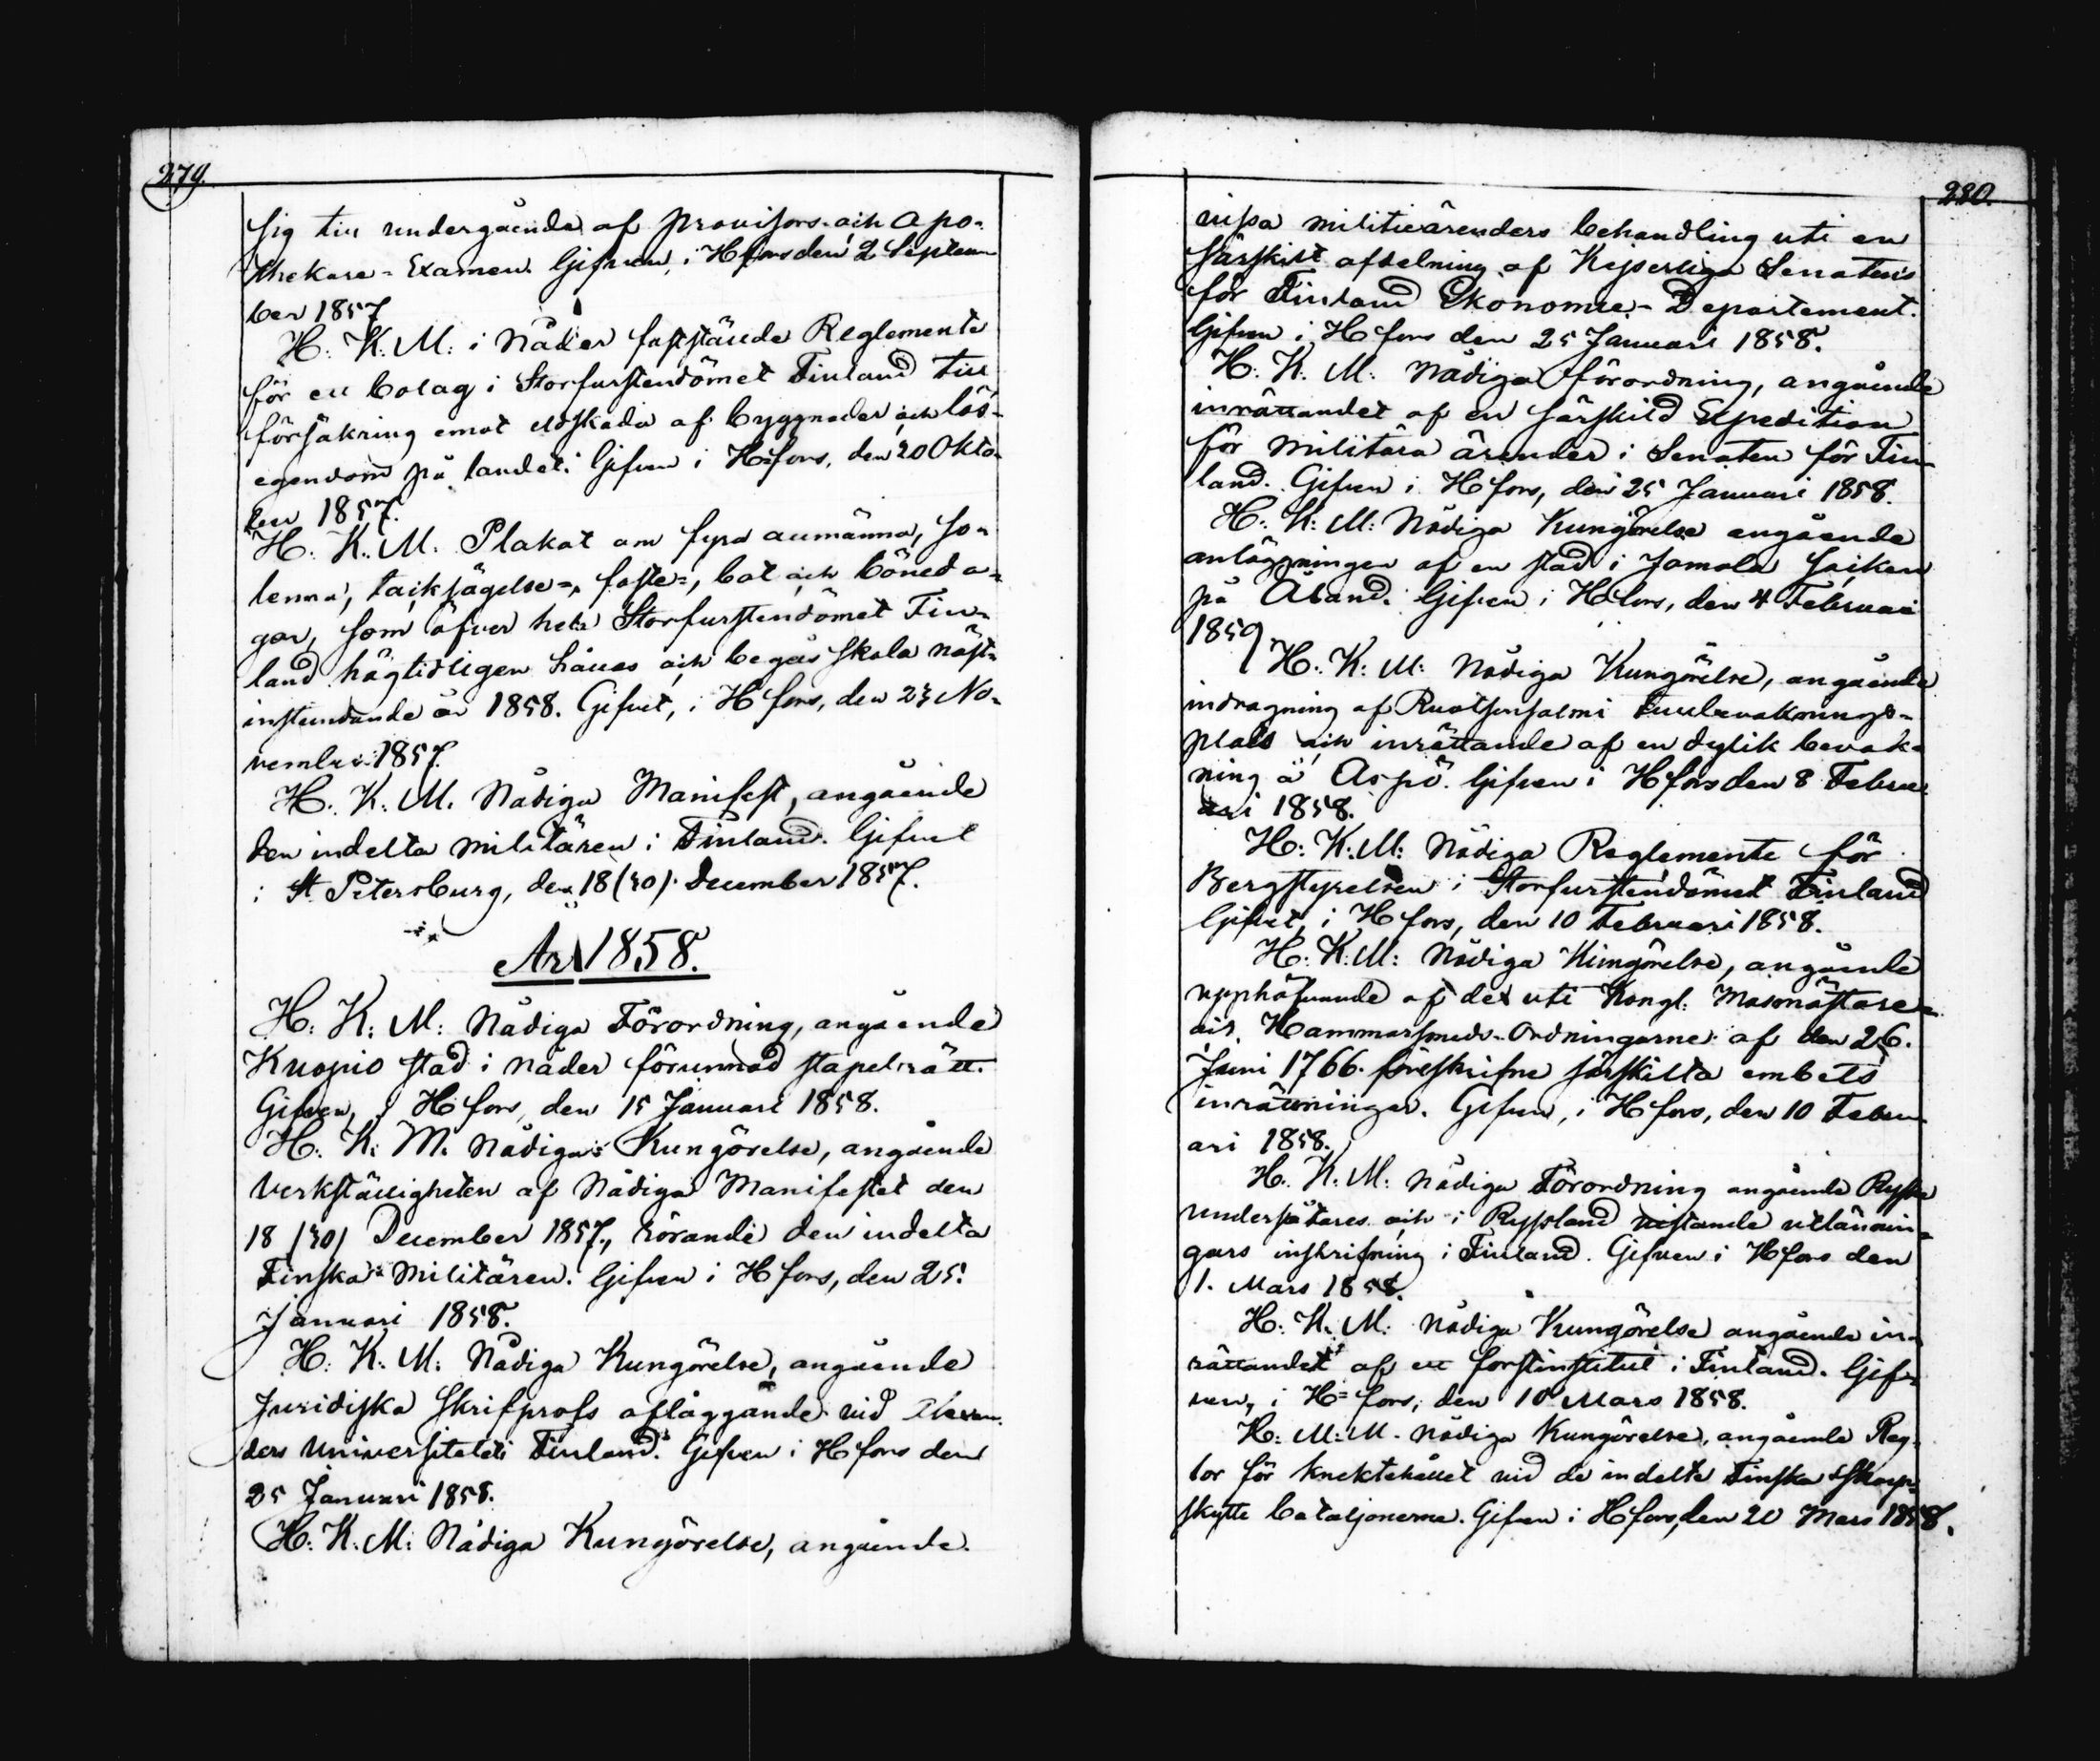 279.
sig till undergående af provisors- och Apo-
thekare-Examen. Gifven, i Hfors den 2 Septem-
ber 1857
H. K. M: i Nåder fastställde Reglemente
för ett bolag i Storfurstendömet Finland till
försäkring emot eldskada af byggnader och lös-
egendom på landet. Gifven i H-fors, den 20 Okto-
ber 1857.
H. K. M. Plakat om fyra allmänna, so-
lenna, tacksägelse-, faste-, bot och böneda-
gar, som öfver hela Storfurstendömet Fin-
land högtidligen hållas och begås skola näst-
instundande år 1858. Gifvet, i H fors, den 23 No-
vember 1857.
H. K. M. Nådiga Manifest, angående
den indelta militären i Finland. Gifvet
i St Petersburg, den 18 (30) December 1857.
År 1858.
H: K: M: Nådiga Förordning, angående
Kuopio stad i nåder förunnad stapelrätt.
Gifven, i H fors, den 15 Januari 1858.
H. K: M. Nådiga Kungörelse, angående
Verkställigheten af Nådiga Manifestet den
18 (30) December 1857, rörande den indelta
Finska Militären. Gifven i H fors, den 25.
Januari 1858.
H: K: M: Nådiga Kungörelse, angående
Juridiska skrifprofs afläggande vid Alexan-
ders Universitetet i Finland. Gifven i H fors den
25 Januari 1858.
H: K: M: Nådiga Kungörelse, angående
280.
vissa militieärenders behandling uti en
särskilt afdelning af Kejserliga Senatens
för Finland Ekonomie-Departement.
Gifven i H fors den 25 Januari 1858.
H: K. M: Nådiga förordning, angående
inrättandet af en särskild Expedition
för Militära ärender i Senaten för Fin-
land. Gifven i H fors, den 25 Januari 1858.
H: K: M: Nådiga Kungörelse angående
anläggningen af en stad i Jomala Socken
på Åland. Gifven i H fors, den 4 Februari
1859
H: K: M: Nådiga Kungörelse, angående
indragning af Ruotsinsalmi tullbevaknings-
plats och inrättande af en dylik bevak-
ning å Aspö. Gifven i H fors den 8 Febru-
ari 1858.
H: K: M: Nådiga Reglemente för
Bergstyrelsen i Storfurstendömet Finland
Gifvet, i H fors, den 10 Februari 1858.
H: K: M: Nådiga Kungörelse, angående
upphäfvande af det uti Kongl: Masmästare-
och Hammarsmeds-Ordningarne af den 26.
Juni 1766. föreskrifne särskilta embets
inrättningar. Gifven, i H fors, den 10 Febru-
ari 1858.
H. K. M: Nådiga Förordning angående Ryska
undersåtares och i Ryssland vistande utlännin-
gars inskrifning i Finland. Gifven i H fors den
1. Mars 1858.
H: K. M: Nådiga Kungörelse angående in-
rättandet af ett forstinstitut i Finland. Gif-
ven, i H-fors, den 10 Mars 1858.
H: M: M. Nådiga Kungörelse, angående Reg-
lor för knektehållet vid de indelte Finska Skarp-
skytte bataljonerna. Gifven i H fors, den 20 Mars 1858.